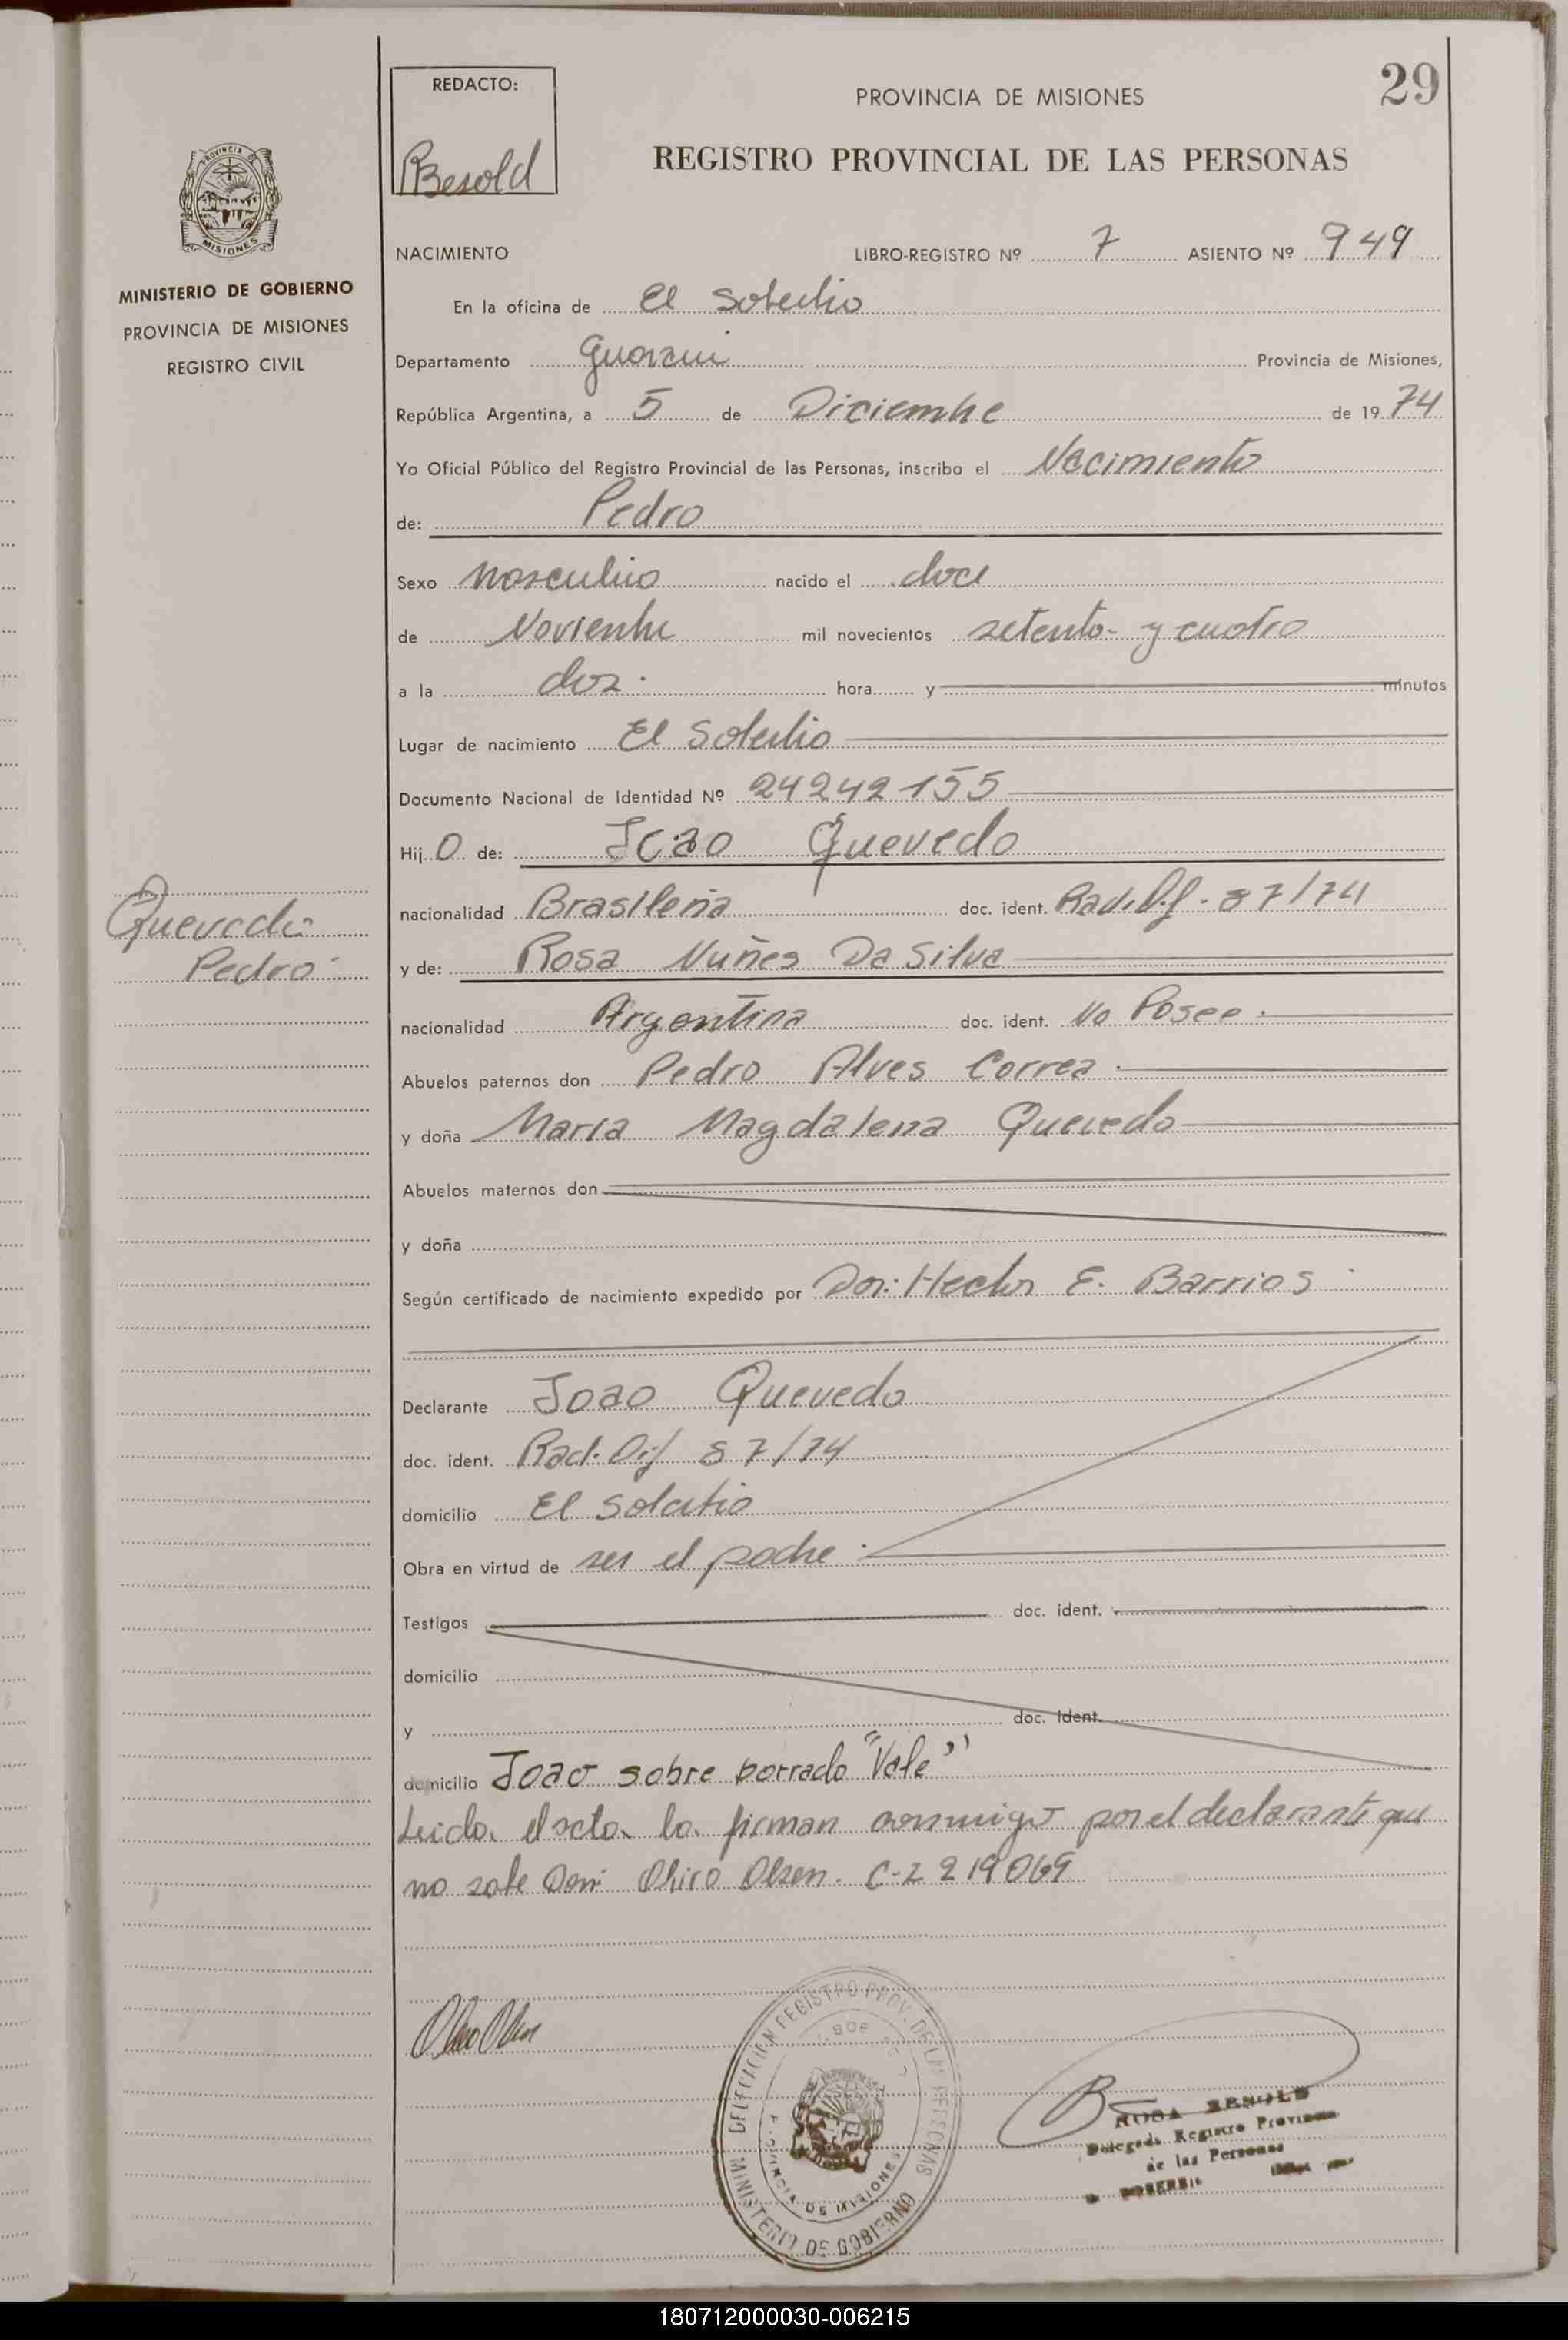 REDACTO:
Besold
PROVINCIA DE MISIONES
29
REGISTRO PROVINCIAL DE LAS PERSONAS
PROVINCIA DE MISIONES
MINISTERIO DE GOBIERNO
PROVINCIA DE MISIONES
REGISTRO CIVIL
NACIMIENTO LIBRO-REGISTRO Nº 7 ASIENTO Nº 949
En la oficina de El Soberbio
Departamento Guarani Provincia de Misiones,
República Argentina, a 5 de Diciembre de 1974
Yo Oficial Público del Registro Provincial de las Personas, inscribo el Nacimiento
de: Pedro
Sexo Masculino nacido el doce
de Noviembre mil novecientos setenta y cuatro
a la dos. hora y minutos
Lugar de nacimiento El Soberbio
Documento Nacional de Identidad Nº 24242155
Hij o de: Joao Quevedo
nacionalidad Brasileña doc. ident. Rad. Dif. 87/74
Quevedo
Pedro
y de: Rosa Nuñes Da Silva
nacionalidad Argentina doc. ident. No Posee.
Abuelos paternos don Pedro Alves Correa
y doña Maria Magdalena Quevedo
Abuelos maternos don
y doña
Según certificado de nacimiento expedido por Dor: Hector E. Barrios
Declarante Joao Quevedo
doc. ident. Rad. Dif 87/74
domicilio El Soberbio
Obra en virtud de ser el padre.
Testigos doc. ident.
domicilio
y doc. ident.
domicilio Joao sobre borrado "Vale"
Leida el acta la firman conmigo por el declarante que
no sabe Don Olsen. C-I 219069
DELEGACION REGISTRO PROV. DE LAS PERSONAS
PROVINCIA DE MISIONES
MINISTERIO DE GOBIERNO
ROSA BESOLD
Delegada Registro Provincial
de las Personas
180712000030-006215